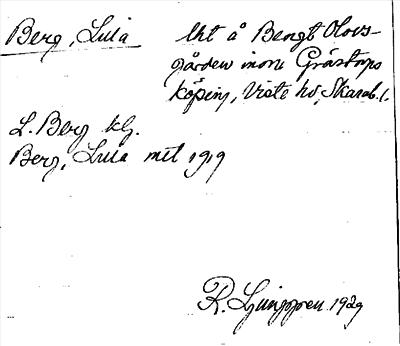 Berg, Lula lht å Bengt Olovs-
gården inom Grästorps
köping, Viste hd, Skarab. l.
L. Berg klg.
Berg, Lula mtl 1919
R. Ljunggren 1929